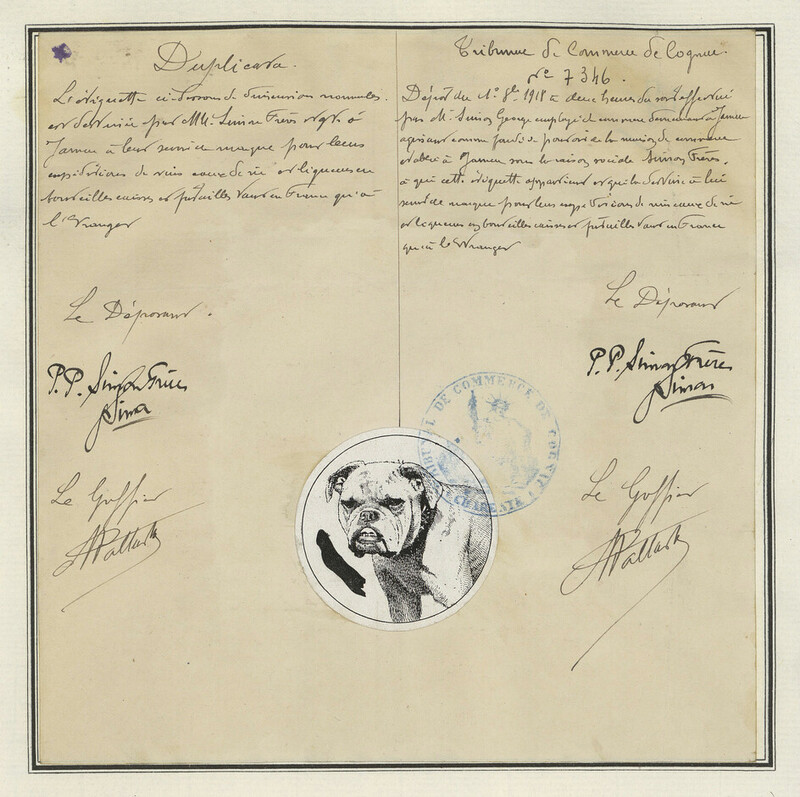 Duplicata.
L'étiquette ci-dessous de dimension nominales
est destinée par MM. Simon Frères à
Jarnac à leur servir de marque pour leurs
expéditions de vins eaux de vie et liqueurs en
bouteilles caisses et futailles tant en France qu'à
l'étranger
Le Déposant.
P.P. Simon Frères
Simon
Le Greffier
Tribunal de Commerce de Cognac.
No 7346.
Dépôt du 1er 8bre 1918 à deux heures du soir effectué
par M. Simon George employé de commerce demeurant à Jarnac
agissant comme fondé de pouvoir de la maison de commerce
établie à Jarnac sous la raison sociale Simon Frères,
à qui cette étiquette appartient et qui la destine à lui
servir de marque pour leurs expéditions de vins eaux de vie
et liqueurs en bouteilles caisses et futailles tant en France
qu'à l'étranger
Le Déposant
P.P. Simon Frères
Simon
Le Greffier
TRIBUNAL DE COMMERCE DE COGNAC
CHARENTE